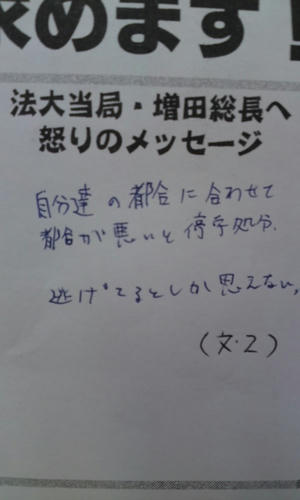 求めます！
法大当局・増田総長へ
怒りのメッセージ
自分達の都合に合わせて
都合が悪いと停学処分、
逃げてるとしか思えない。
（文・2）